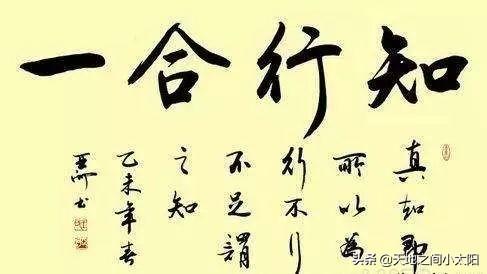 知行合一
真知即
所以為
行不行
不足謂
之知
乙未年春
头条 @天地之间小太阳